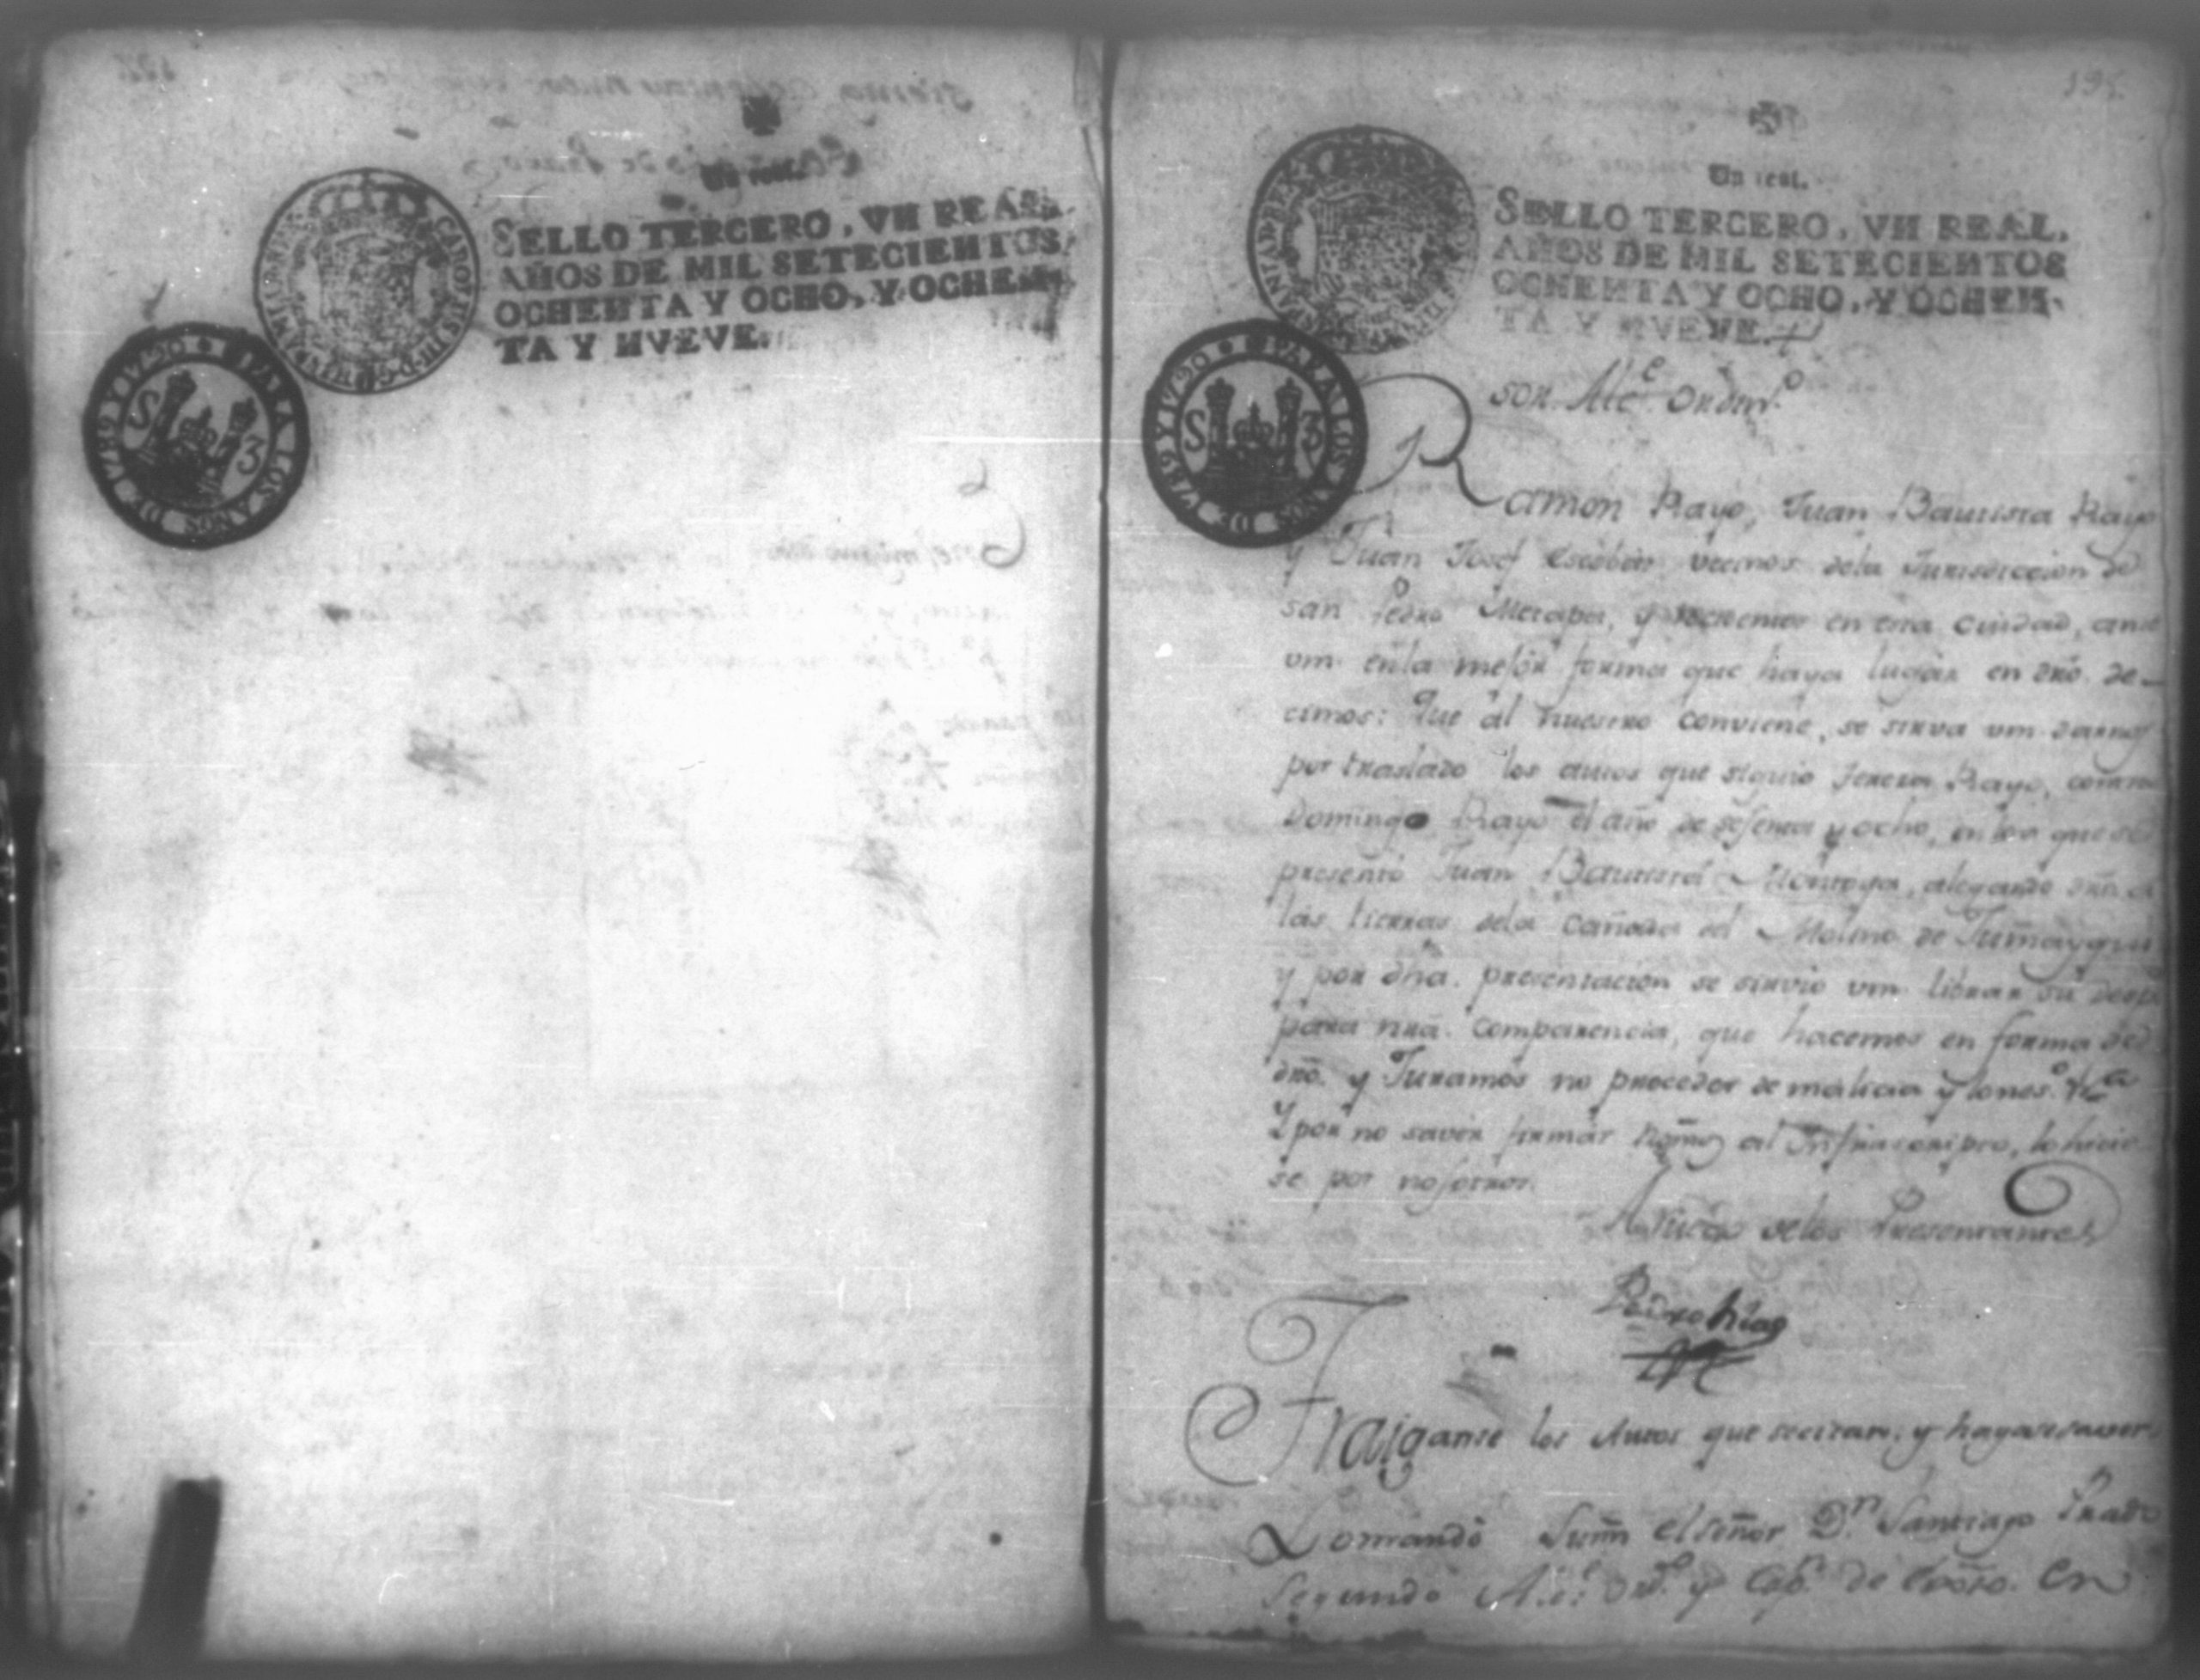 Un real.
SELLO TERCERO, VN REAL,
AÑOS DE MIL SETECIENTOS
OCHENTA Y OCHO, Y OCHEN-
TA Y NVEVE.
PARA LOS AÑOS DE 1789 Y 1790
S 3
195
Un real.
SELLO TERCERO, VN REAL,
AÑOS DE MIL SETECIENTOS
OCHENTA Y OCHO, Y OCHEN-
TA Y NVEVE.
PARA LOS AÑOS DE 1789 Y 1790
S 3
sor. Alc.e Ordin.o
Ramon Rayo, Juan Bautista Rayo
y Juan Josef Escobar vecinos dela Jurisdiccion de
san Pedro Metapa, y recidentes en esta Ciudad, ante
vm. enla mejor forma que haya lugar en dro. de-
cimos: Que al nuestro conviene, se sirva vm. darnos
por traslado los autos que siguio Rayo, contra
Domingo Rayo el año de sesenta y ocho, en los que se
presentó Juan Bautista Montoya, alegando dro. a
las tierras dela Cañada del Molino de
y por dha. presentacion se sirvio vm. librar su
para nra. Comparencia, que hacemos en forma de
dro. y Juramos no proceder de malicia y lo nes.o &.a
Y por no saver firmar al Infraescripto, lo hicie-
se por nosotros.
A ruego delos Presentantes
Pedro
Traiganse los Autos que se citan, y hagase saver.
Lo mandó el señor D.n Santiago
Segundo Alc.e Ord.o y Cap.n de En